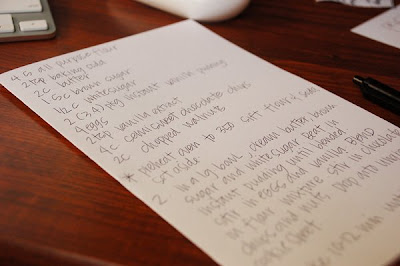 4.5 all purpose flour
2 tsp baking soda
2c butter
1.5c brown sugar
1/2c white sugar
2 (3.4) pkg instant vanilla pudding
4 eggs
2 tsp vanilla extract
4c semisweet chocolate chips
2c chopped walnuts
* preheat oven to 350 sift flour & soda
set aside
2 in a lg bowl, cream butter, brown
sugar and white sugar. Beat in
instant pudding until blended
stir in eggs and vanilla. Blend
in flour mixture. Stir in chocolate
chips and nuts. Drop onto
cookie sheet
10-12 min until